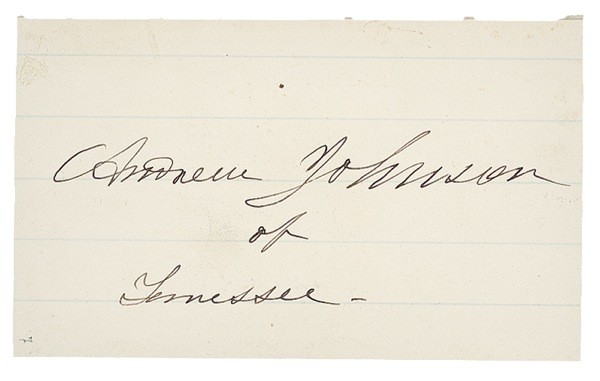 Andrew Johnson
of
Tennessee -